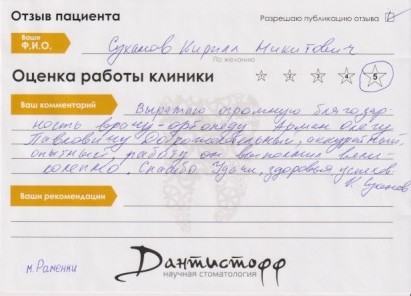 Отзыв пациента
Разрешаю публикацию отзыва
Ваше Ф.И.О.
Суханов Кирилл Никитович
По желанию
Оценка работы клиники
1 2 3 4 5
Ваш комментарий
Выражаю огромную благодар-
ность врачу-ортопеду Арман Олегу
Павловичу. Доброжелательный, аккуратный,
опытный, работу он выполнил вели-
колепно. Спасибо. Удачи, здоровья, успехов.
К. Суханов
Ваши рекомендации
м. Раменки
Дантистофф
научная стоматология